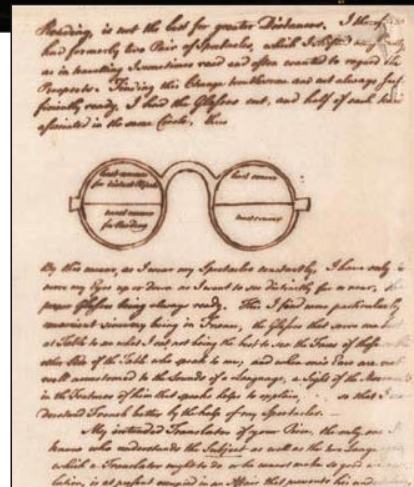 Reading, is not the best for greater Distances. I therefore
had formerly two Pair of Spectacles, which I shifted occasionally
as in travelling I sometimes read and often wanted to regard the
Prospects. Finding this Change troublesome and not always suf-
ficiently ready, I had the Glasses cut, and half of each kind
associated in the same Circle, thus
least convex
for distant Objects
least convex
most convex
for Reading
most convex
By this means, as I wear my Spectacles constantly, I have only to
move my Eyes up or down as I want to see distinctly far or near, the
proper Glasses being always ready. This I find more particularly
convenient since my being in France, the Glasses that serve me best
at Table to see what I eat, not being the best to see the Faces of those on the
other Side of the Table who speak to me; and when one's Ears are not
well accustomed to the Sounds of a Language, a Sight of the Movements
in the Features of him that speaks helps to explain, so that I
understand French better by the help of my Spectacles. —
My intended Translator of your Piece, the only one I
know who understands the Subject as well as the two Languages
which a Translator ought to do or he cannot make so good a Trans-
lation, is at present occupied in an Affair that prevents his undertaking